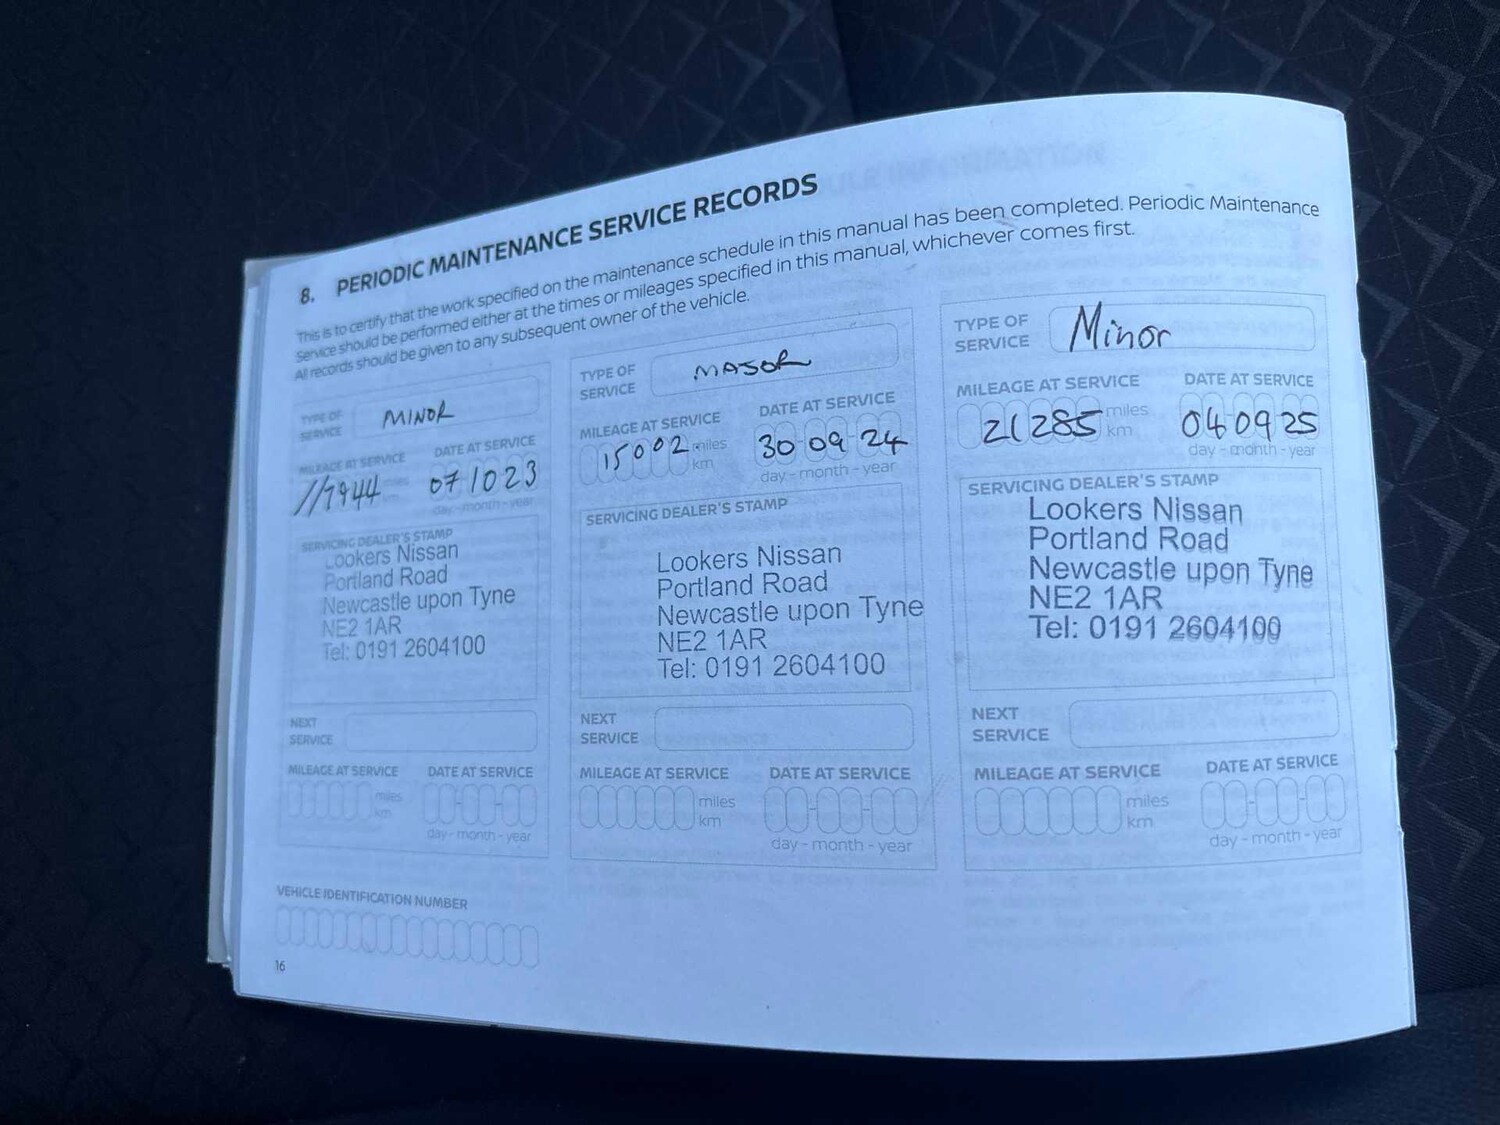 8. PERIODIC MAINTENANCE SERVICE RECORDS
This is to certify that the work specified on the maintenance schedule in this manual has been completed. Periodic Maintenance
Service should be performed either at the times or mileages specified in this manual, whichever comes first.
All records should be given to any subsequent owner of the vehicle.
TYPE OF
SERVICE
MINOR
MILEAGE AT SERVICE
DATE AT SERVICE
//7944
miles
km
07 10 23
day - month - year
SERVICING DEALER'S STAMP
Lookers Nissan
Portland Road
Newcastle upon Tyne
NE2 1AR
Tel: 0191 2604100
NEXT
SERVICE
MILEAGE AT SERVICE
DATE AT SERVICE
miles
km
day - month - year
TYPE OF
SERVICE
MAJOR
MILEAGE AT SERVICE
DATE AT SERVICE
15002
miles
km
30 09 24
day - month - year
SERVICING DEALER'S STAMP
Lookers Nissan
Portland Road
Newcastle upon Tyne
NE2 1AR
Tel: 0191 2604100
NEXT
SERVICE
MILEAGE AT SERVICE
DATE AT SERVICE
miles
km
day - month - year
TYPE OF
SERVICE
Minor
MILEAGE AT SERVICE
DATE AT SERVICE
21285
miles
km
04 09 25
day - month - year
SERVICING DEALER'S STAMP
Lookers Nissan
Portland Road
Newcastle upon Tyne
NE2 1AR
Tel: 0191 2604100
NEXT
SERVICE
MILEAGE AT SERVICE
DATE AT SERVICE
miles
km
day - month - year
VEHICLE IDENTIFICATION NUMBER
16